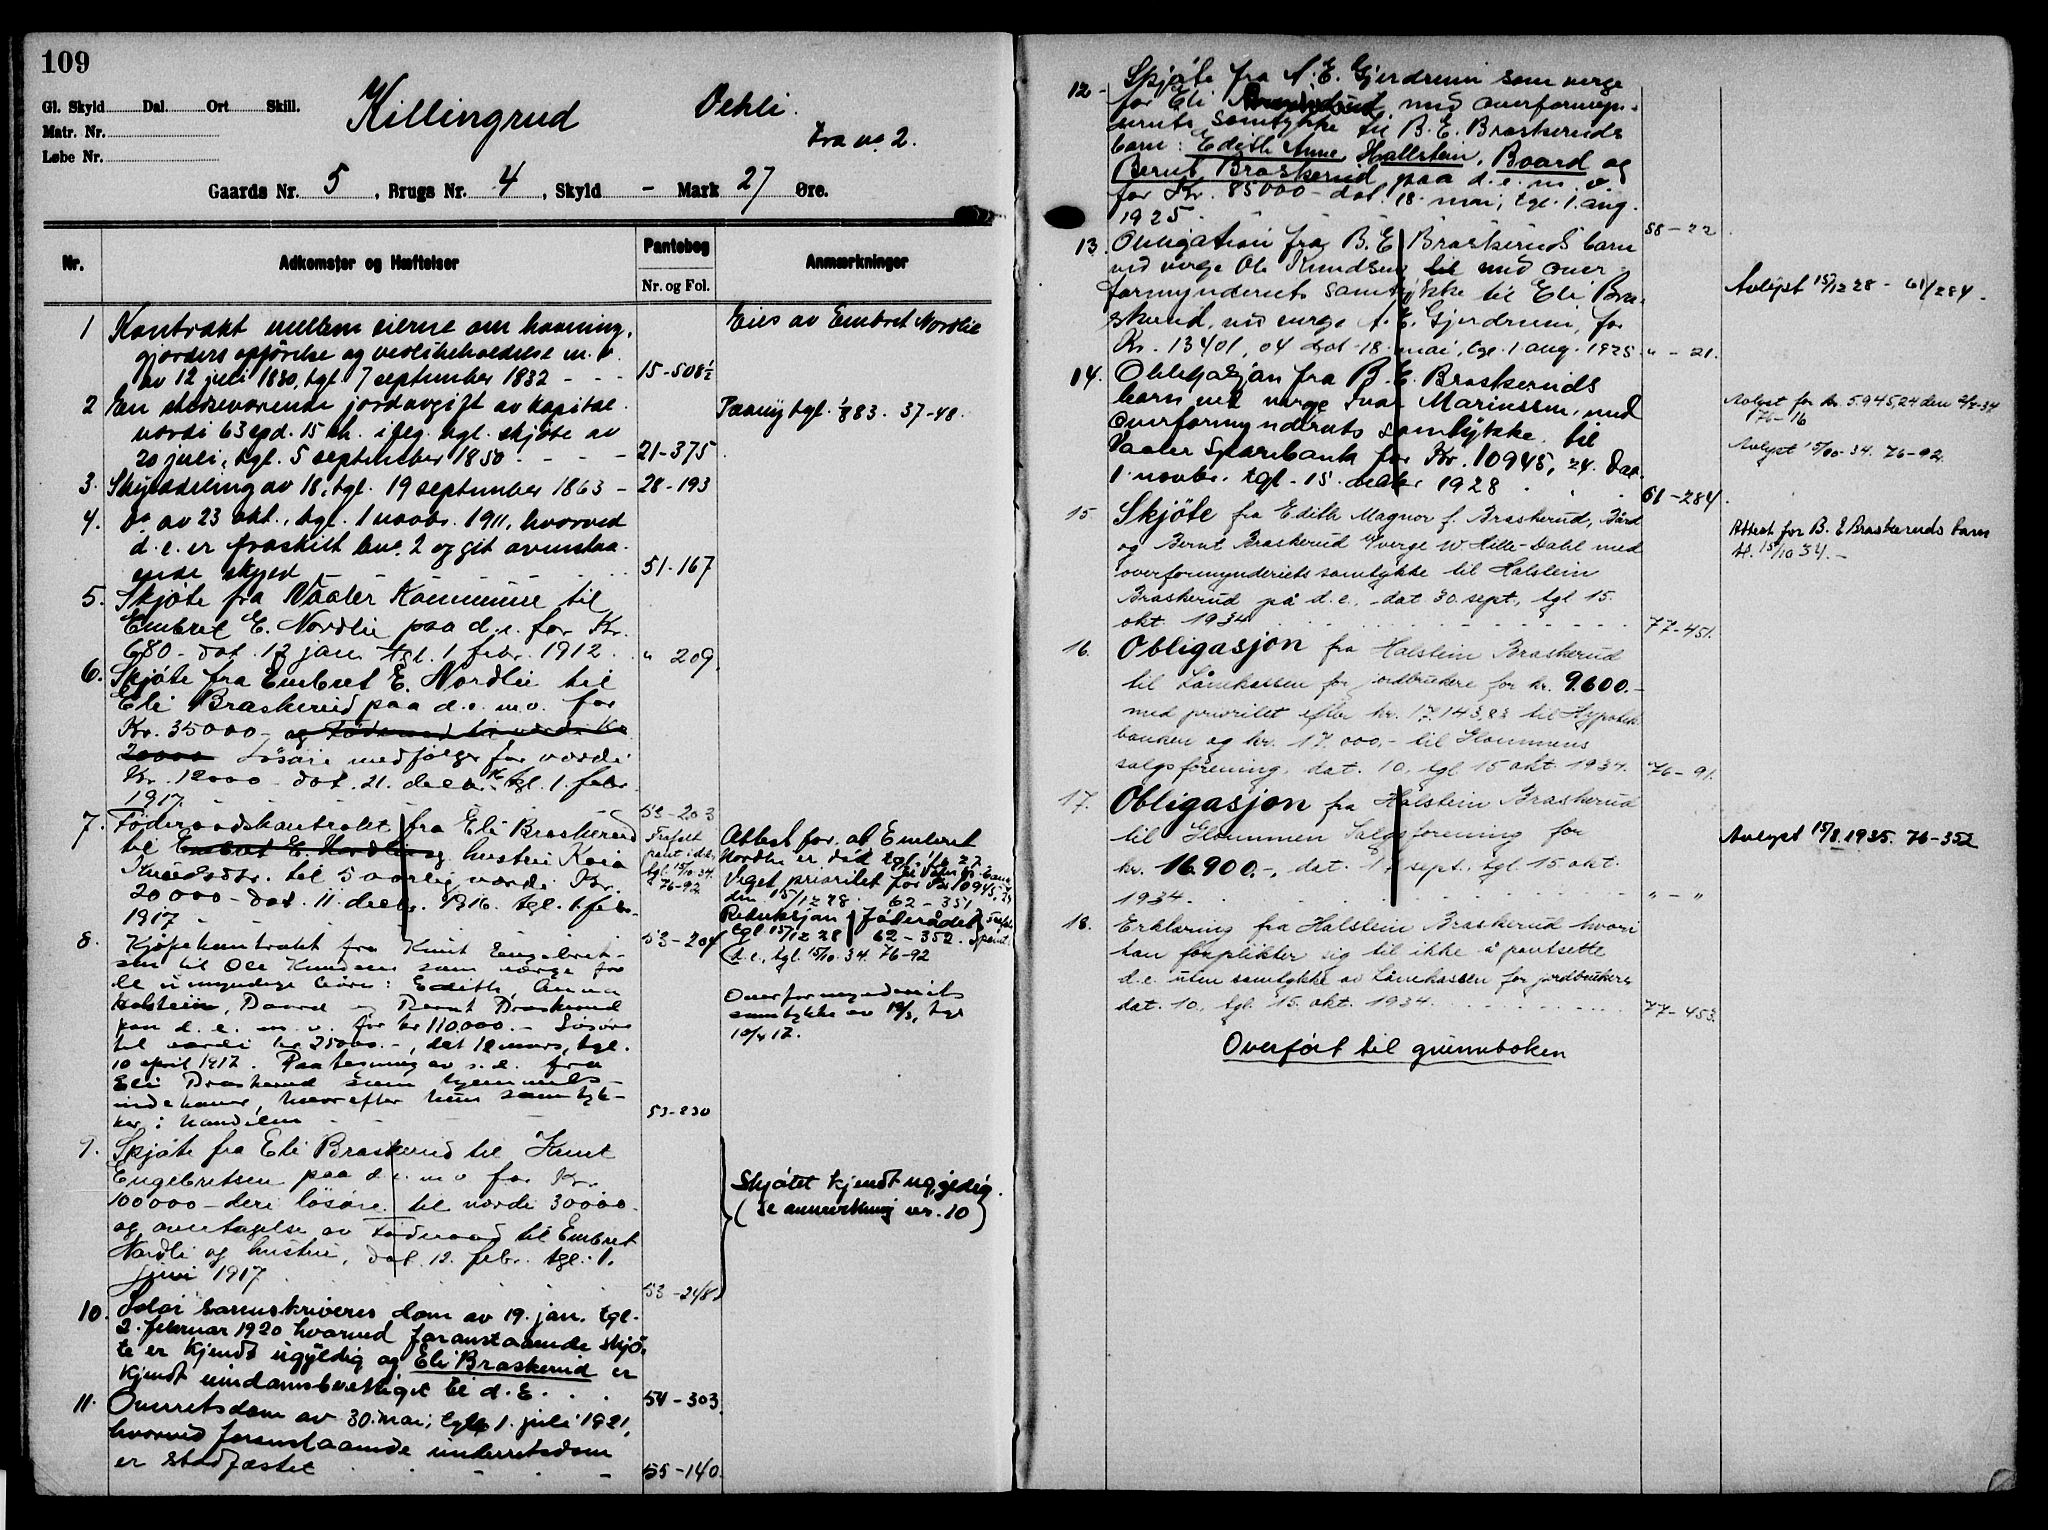 109
Gl. Skyld Dal. Ort Skill.
Matr. Nr.
Løbe Nr.
Killingrud Oehli.
fra no. 2.
Gaards Nr. 5, Brugs Nr. 4, Skyld - Mark 27 Øre.
Nr. Adkomster og Hæftelser Pantebog Nr. og Fol. Anmærkninger
1 Kontrakt mellem eierne om havning,
gjærders opførelse og vedlikeholdelse m. v.
av 12 juli 1830, tgl. 7 september 1832 - - - 15-508½
Eies av Embret Nordlie
2 En stedsevarende jordavgift av kapital
værdi 63 spd. 15 sk. iflg. tgl. skjøte av
20 juli, tgl. 5 september 1850 - - - - 21-375
Paany tgl. 1883. 37-48.
3. Skylddeling av 18, tgl. 19 september 1863 - 28-193
4. Do av 23 okt., tgl. 1 novbr. 1911, hvorved
d. e. er fraskilt bno. 2 og git ovenstaa-
ende skyld - - - 51-167
5. Skjøte fra Vaaler Kommune til
Embret E. Nordlie paa d. e. for Kr.
680 - dat. 12 jan. tgl. 1 febr. 1912. " 209.
6. Skjøte fra Embret E. Nordlie til
Eli Braskerud paa d. e. m. v. for
Kr. 35000 - og Føderaad til værdi Kr.
20000 Løsøre medfølger for værdi
Kr. 12000 - dat. 21. decbr. 16 tgl. 1. febr.
1917 - - - 53-203
7. Føderaadskontrakt fra Eli Braskerud
til Embret E. Nordlie og hustru Kaia
Knudsdtr. til 5 aarlig værdi Kr.
20000 - Dat. 11. decbr. 1916. tgl. 1. febr.
1917 - - 53-204
Frafalt
pant i d.e.
tgl. 15/10-34.
76-92
Attest for at Embret
Nordlie er død tgl.
Veget prioritet for Kr 10945,24
den 15/12 28. 62-351
Reduksjon i føderådet
tgl 15/12 28 62-352.
d. e., tgl. 15/10. 34. 76-92
8. Kjøpekontrakt fra Knut Engebret-
sen til Ole Knudsen som værge for
de umyndige barn: Edith, Anna
Halstein, Baard og Bernt Braskerud
paa d. e. m. v. for kr 110,000. - Løsøre
til værdi kr 25000.-, dat 12 mars, tgl.
10 april 1917. Paategning av s. d. fra
Eli Braskerud som hjemmels-
indehaver, hvorefter hun samtyk-
ker i handelen - - - 53-230
Overformynderiets
samtykke av 12/3, tgl
10/4 17.
9. Skjøte fra Eli Braskerud til Knut
Engebretsen paa d. e. m v for Kr.
100000 - deri løsøre til værdi 30000
og overtagelse av Føderaad til Embret
Nordli og hustru, dat. 12. febr. tgl. 1.
juni 1917 53-248
Skjøtet kjendt ugyldig.
(se anmerkning nr. 10)
10. Solør sorenskriveres dom av 19. jan. tgl.
2. februar 1920 hvorved foranstaaende skjø-
te er kjendt ugyldig og Eli Braskerud er
kjendt eiendomsberettiget til d. E. . . . 54-303
11. Overretsdom av 30. mai, tgl. 1. juli 1921,
hvorved foranstaaende underretsdom
er stadfæstet - - - 55-140.
12. Skjøte fra A. E. Gjerdrum som verge
for Eli Braskerud, med overformyn-
deriets samtykke til B. E. Braskeruds
barn: Edith Anne, Hallstein, Baard og
Bernt Braskerud paa d. e. m. v.
for Kr. 85000 - dat. 18. mai, tgl. 1. aug.
1925. 58-22.
13. Obligation fra B. E. Braskeruds barn
ved verge Ole Knudsen til med over-
formynderiets samtykke til Eli Bra-
skerud, ved verge A. E. Gjerdrum, for
Kr. 13401,04 dat. 18. mai, tgl. 1 aug. 1925 " - 21.
Avlyst 15/12 28 - 61/284.
14. Obligasjon fra B. E. Braskeruds
barn ved verge Ivar Marinssen, med
overformynderiets samtykke til
Vaaler Sparebank for Kr. 10945,24. Dat.
1. novbr. tgl. 15. decbr. 1928 . . . 61-284.
Avlyst for kr. 5.945,24 den 2/2-34
76-16
Avlyst 15/10-34. 76-92.
15. Skjøte fra Edith Magnor f. Braskerud, Bård
og Bernt Braskerud v/verge W. Hille-Dahl med
overformynderiets samtykke til Halstein
Braskerud på d. e., dat 30. sept., tgl 15.
okt. 1934 - - - 77-451.
Attest for B. E Braskeruds barn
tl. 15/10 34. -
16. Obligasjon fra Halstein Braskerud
til Lånekassen for jordbrukere for kr. 9.600.-
med prioritet efter kr. 17.143,83 til Hypotek
banken og kr. 17.000,- til Glommens
salgsforening, dat. 10, tgl 15 okt. 1934. 76-91.
17. Obligasjon fra Halstein Braskerud
til Glommen Salgsforening for
kr. 16.900.-, dat. sept., tgl 15 okt.
1934. . . . " - "
Avlyst 15/8. 1935. 76-352
18. Erklæring fra Halstein Braskerud hvori
han forplikter sig til ikke å pantsette
d. e. uten samtykke av Lånekassen for jordbrukere
dat. 10., tgl. 15. okt. 1934. . . . 77-453.
Overført til grunnboken